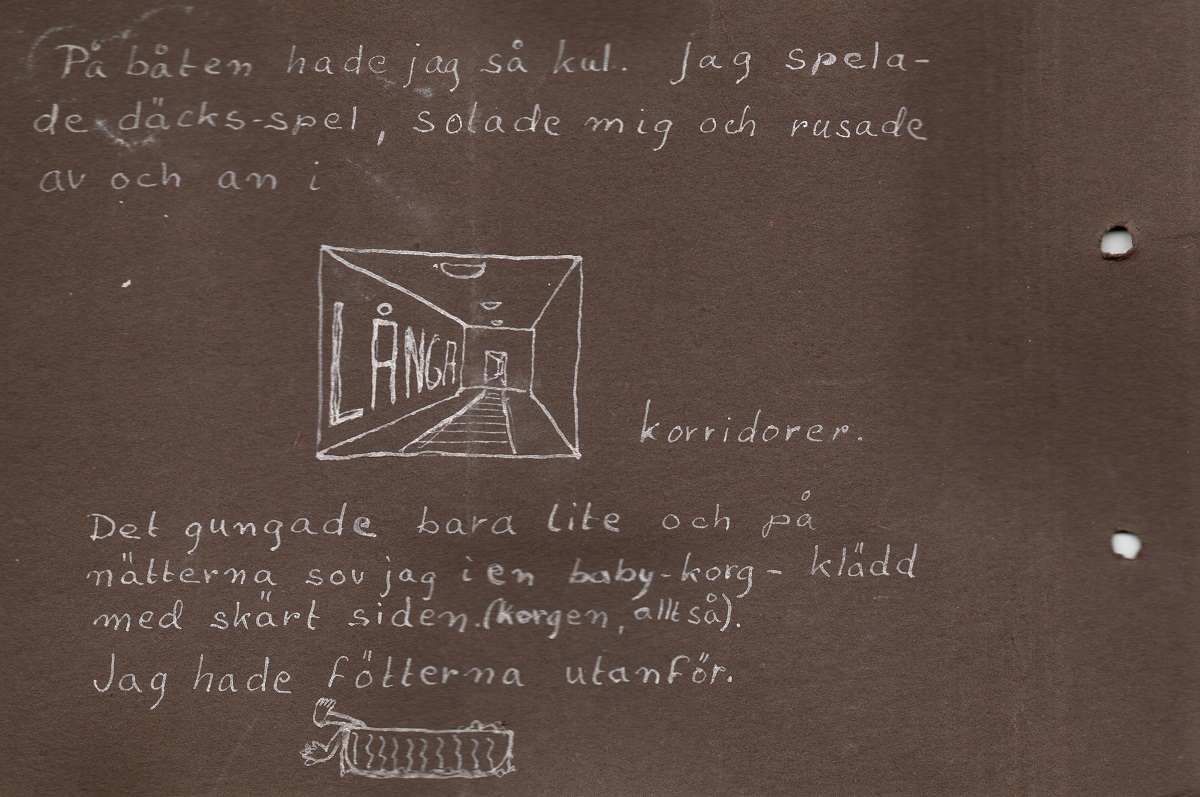 På båten hade jag så kul. Jag spela-
de däcks-spel, solade mig och rusade
av och an i
LÅNGA
korridorer.
Det gungade bara lite och på
nätterna sov jag i en baby-korg - klädd
med skärt siden. (korgen, alltså).
Jag hade fötterna utanför.